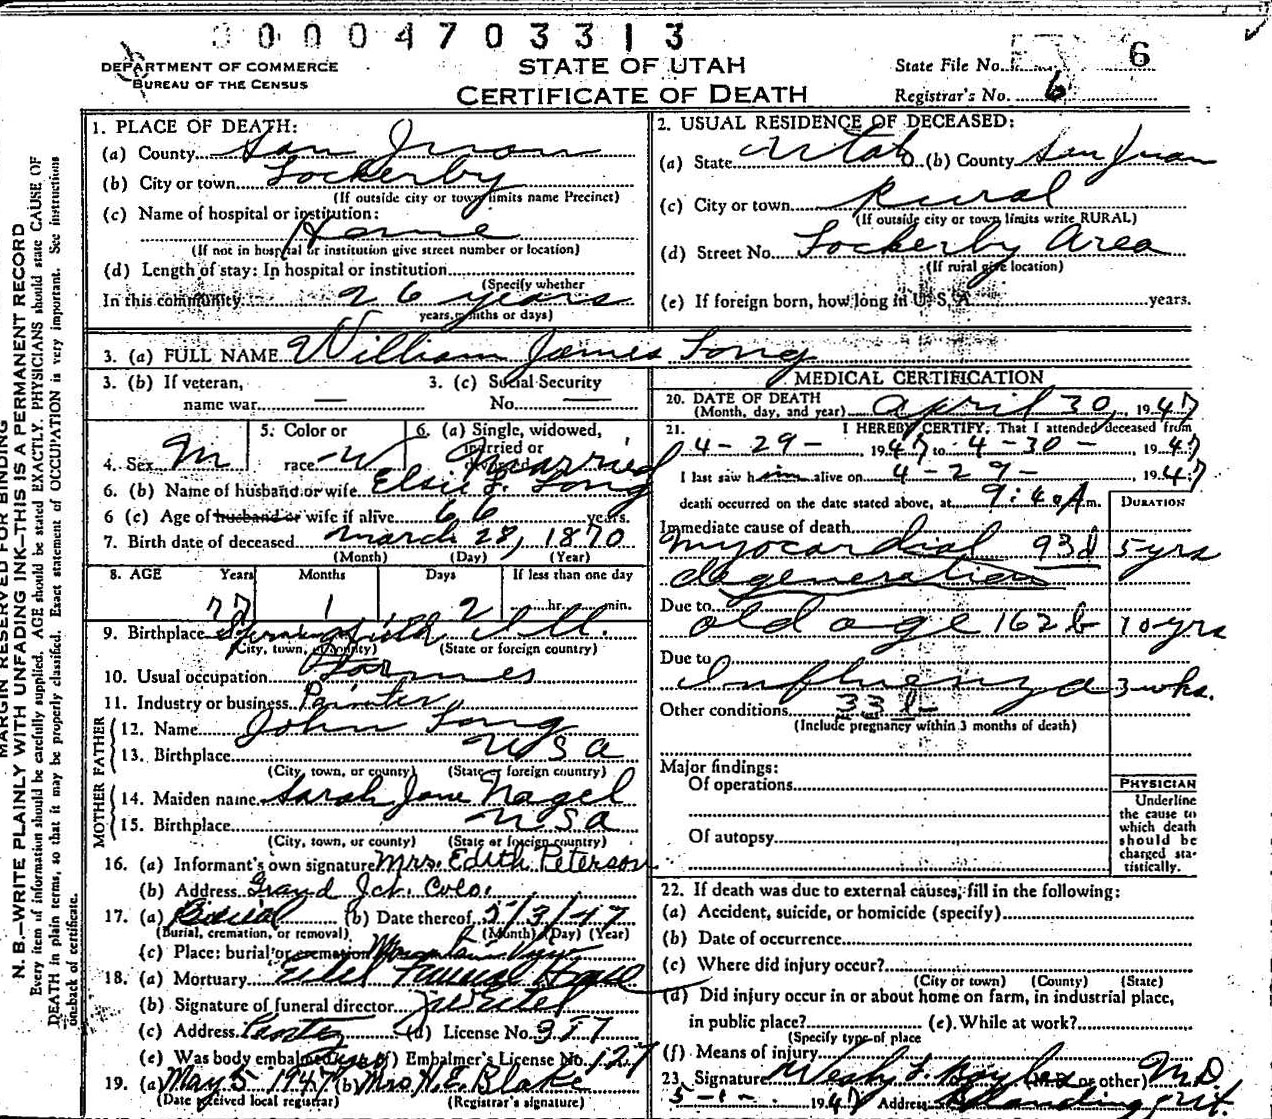 00004703313
DEPARTMENT OF COMMERCE
BUREAU OF THE CENSUS
STATE OF UTAH
CERTIFICATE OF DEATH
State File No. 6
Registrar's No. 6
MARGIN RESERVED FOR BINDING
N. B.—WRITE PLAINLY WITH UNFADING INK—THIS IS A PERMANENT RECORD
Every item of information should be carefully supplied. AGE should be stated EXACTLY. PHYSICIANS should state CAUSE OF
DEATH in plain terms, so that it may be properly classified. Exact statement of OCCUPATION is very important. See instructions
on back of certificate.
1. PLACE OF DEATH:
(a) County San Juan
(b) City or town Lockerby
(If outside city or town limits name Precinct)
(c) Name of hospital or institution:
Home
(If not in hospital or institution give street number or location)
(d) Length of stay: In hospital or institution
(Specify whether
In this community 26 years
years, months or days)
2. USUAL RESIDENCE OF DECEASED:
(a) State Utah (b) County San Juan
(c) City or town Rural
(If outside city or town limits write RURAL)
(d) Street No. Lockerby Area
(If rural give location)
(e) If foreign born, how long in U. S. A. years.
3. (a) FULL NAME William James Long
3. (b) If veteran,
name war —
3. (c) Social Security
No. —
4. Sex M
5. Color or
race W
6. (a) Single, widowed,
married or
divorced married
6. (b) Name of husband or wife Elsie L. Long
6 (c) Age of husband or wife if alive 66 years.
7. Birth date of deceased March 28, 1870
(Month) (Day) (Year)
8. AGE Years Months Days If less than one day
77 1 2 hr. min.
9. Birthplace Springfield Ill.
(City, town, or county) (State or foreign country)
10. Usual occupation
11. Industry or business Painter
FATHER
12. Name John Long
13. Birthplace USA
(City, town, or county) (State or foreign country)
MOTHER
14. Maiden name Sarah Jane Nagel
15. Birthplace USA
(City, town, or county) (State or foreign country)
16. (a) Informant's own signature Mrs. Edith Peterson
(b) Address Grand Jct. Colo.
17. (a) Burial (b) Date thereof 5/3/47
(Burial, cremation, or removal) (Month) (Day) (Year)
(c) Place: burial or cremation Mountain View
18. (a) Mortuary Funeral Home
(b) Signature of funeral director
(c) Address Cortez (d) License No. 357
(e) Was body embalmed yes (f) Embalmer's License No. 127
19. (a) May 5 1947 (b) Mrs. H. E. Blake
(Date received local registrar) (Registrar's signature)
MEDICAL CERTIFICATION
20. DATE OF DEATH
(Month, day, and year) April 30, 1947
21. I HEREBY CERTIFY, That I attended deceased from
4-29- 1947 to 4-30- 1947
I last saw him alive on 4-29- 1947
death occurred on the date stated above, at 9:40 A m.
DURATION
Immediate cause of death
myocardial 93d 5 yrs
degeneration
Due to
old age 162b 10 yrs
Due to
Influenza 3 wks.
Other conditions 33b
(Include pregnancy within 3 months of death)
Major findings:
Of operations
Of autopsy
PHYSICIAN
Underline
the cause to
which death
should be
charged sta-
tistically.
22. If death was due to external causes, fill in the following:
(a) Accident, suicide, or homicide (specify)
(b) Date of occurrence
(c) Where did injury occur?
(City or town) (County) (State)
(d) Did injury occur in or about home on farm, in industrial place,
in public place? (e) While at work?
(Specify type of place
(f) Means of injury
23. Signature (M. D. or other) M.D.
5-1- 1947 Address Blanding, Ut.